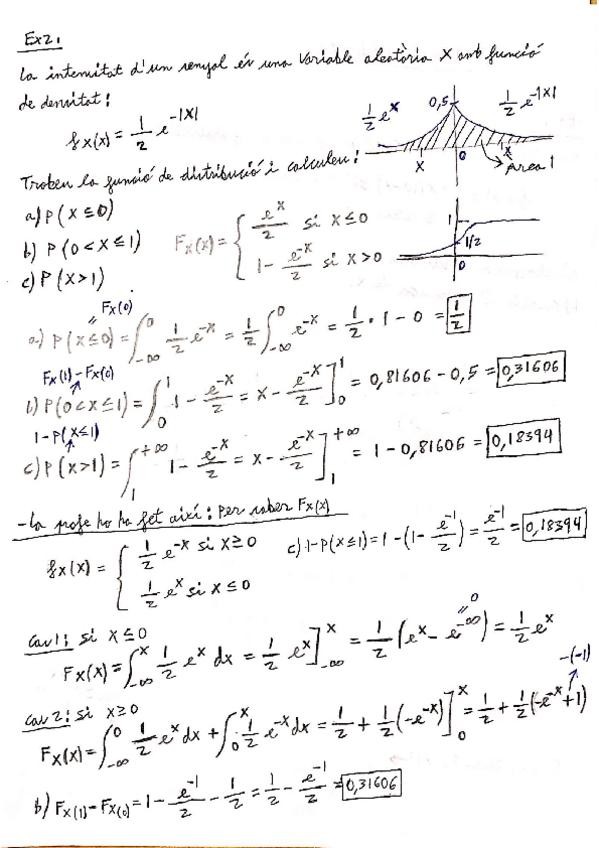 Ex2:
La intensitat d'un senyal és una variable aleatòria X amb funció
de densitat:
fx(x) = 1/2 e^-|x|
1/2 e^x 0,5 1/2 e^-|x|
X 0 x Àrea 1
Troben la funció de distribució i calculeu:
a) P(X ≤ 0)
b) P(0 < X ≤ 1)
c) P(X > 1)
Fx(x) = { e^x/2 si x ≤ 0
1 - e^-x/2 si x > 0
1 1/2 0
Fx(0)
a) P(X ≤ 0) = ∫_-∞^0 1/2 e^-x = 1/2 ∫_-∞^0 e^-x = 1/2 · 1 - 0 = 1/2
Fx(1) - Fx(0)
b) P(0 < X ≤ 1) = ∫_0^1 1 - e^-x/2 = x - e^-x/2 ]_0^1 = 0,81606 - 0,5 = 0,31606
1 - P(X ≤ 1)
c) P(X > 1) = ∫_1^+∞ 1 - e^-x/2 = x - e^-x/2 ]_1^+∞ = 1 - 0,81606 = 0,18394
- La profe ho ha fet així: per saber Fx(x)
fx(x) = { 1/2 e^-x si x ≥ 0
1/2 e^x si x ≤ 0
c) 1 - P(X ≤ 1) = 1 - (1 - e^-1/2) = e^-1/2 = 0,18394
Cas 1: si x ≤ 0
Fx(x) = ∫_-∞^x 1/2 e^x dx = 1/2 e^x ]_-∞^x = 1/2 (e^x - e^-∞) = 1/2 e^x
0
Cas 2: si x ≥ 0
-(-1)
Fx(x) = ∫_-∞^0 1/2 e^x dx + ∫_0^x 1/2 e^-x dx = 1/2 + 1/2 (-e^-x) ]_0^x = 1/2 + 1/2 (-e^-x + 1)
b) Fx(1) - Fx(0) = 1 - e^-1/2 - 1/2 = 1/2 - e^-1/2 = 0,31606